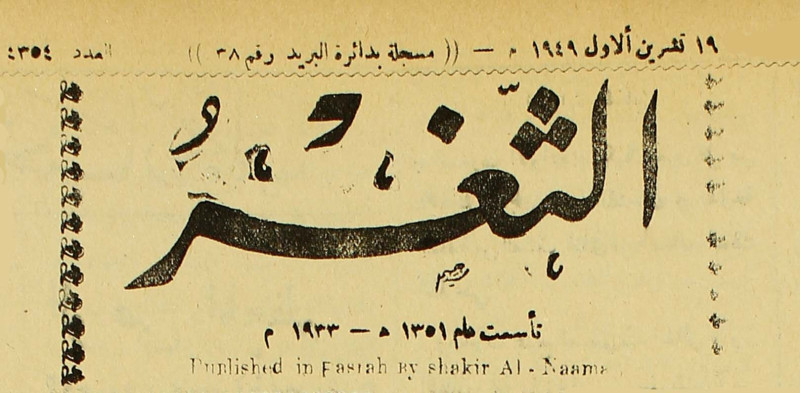 ١٩ تشرين ألاول ١٩٤٩ م — (( مسجلة بدائرة البريد رقم ٣٨ )) العدد ٤٣٥٤
الثغر
تأسست عام ١٣٥١ ه — ١٩٣٣ م
Published in Basrah By shakir Al - Naama